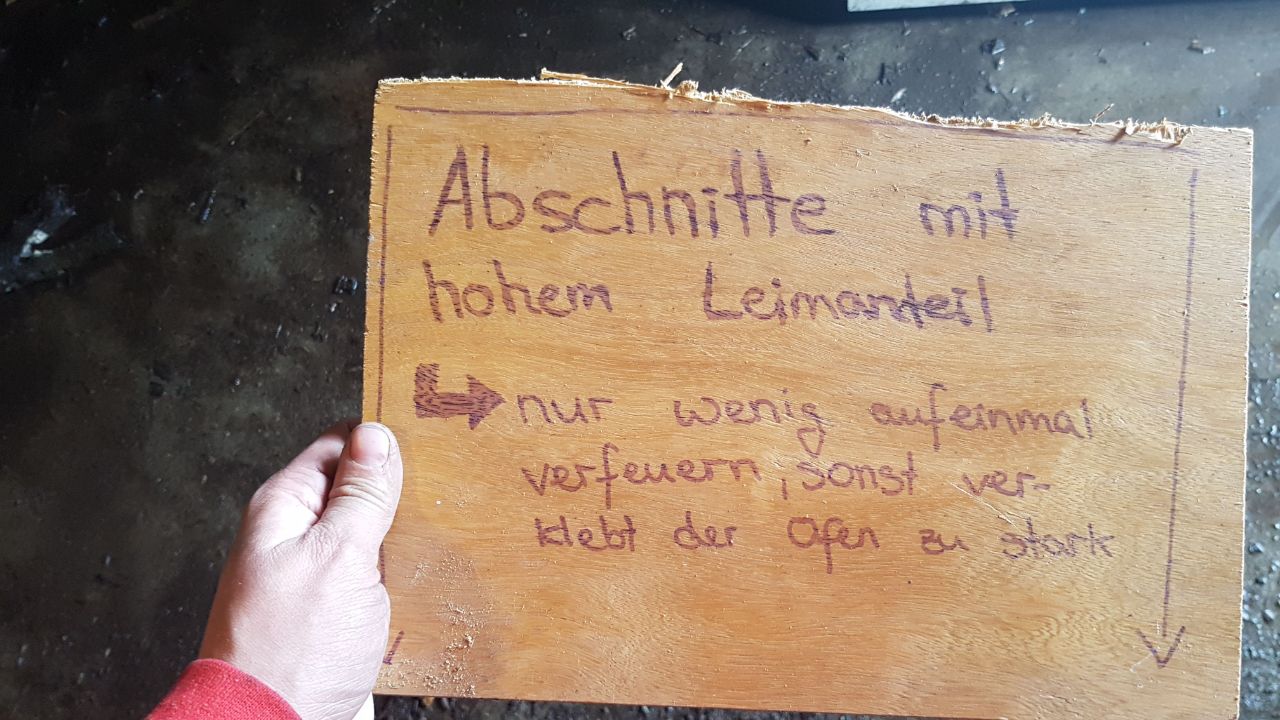 Abschnitte mit
hohem Leimanteil
nur wenig aufeinmal
verfeuern, sonst ver-
klebt der Ofen zu stark